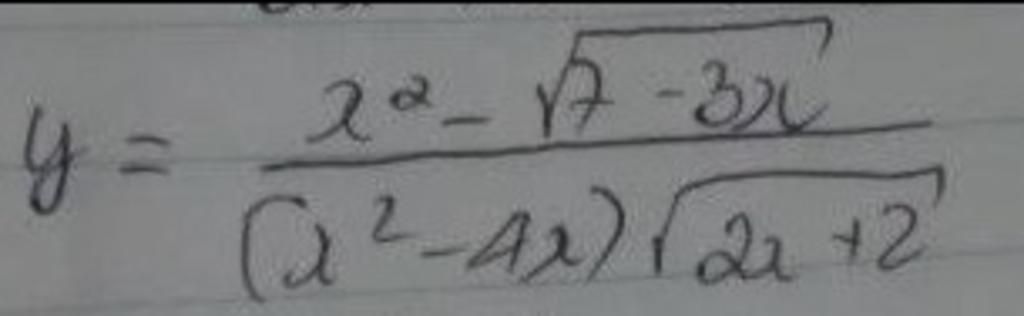 y = \frac{x^2 - \sqrt{7 - 3x}}{(x^2 - 4x)\sqrt{2x + 2}}